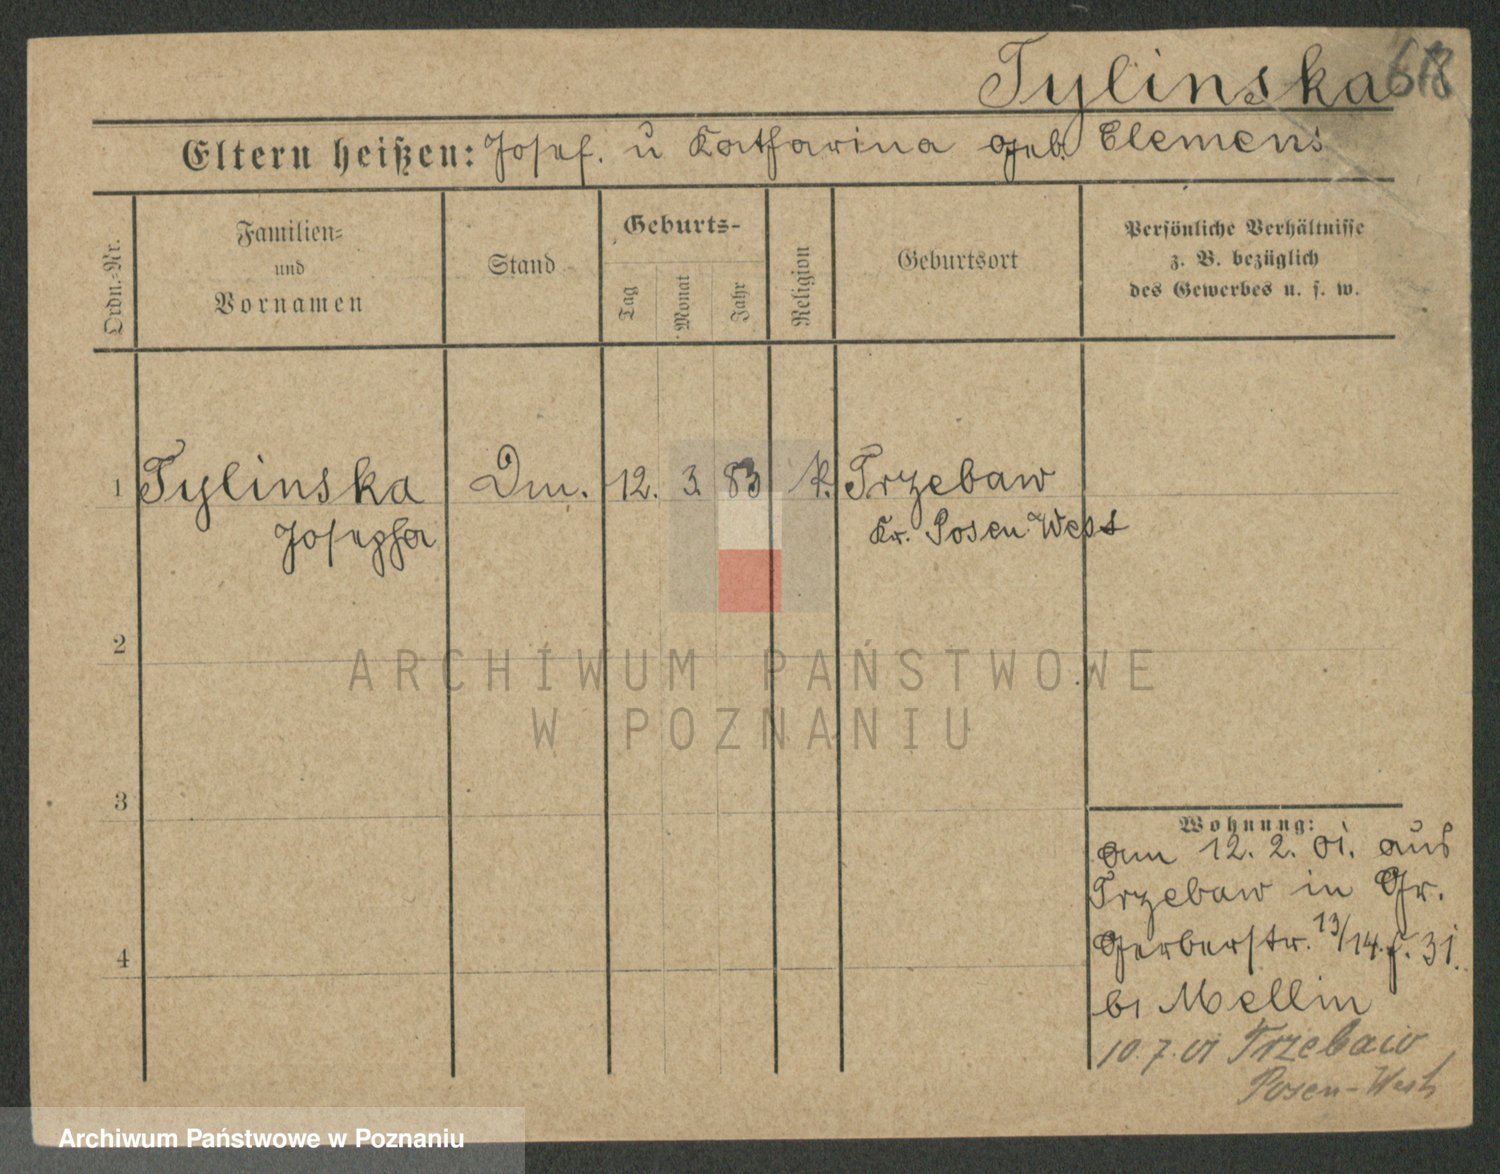 Tylinska 618
Eltern heißen: Josef. u Katharina geb. Clemens
Ordn.-Nr.
Familien-
und
Vornamen
Stand
Geburts-
Tag
Monat
Jahr
Religion
Geburtsort
Persönliche Verhältnisse
z. B. bezüglich
des Gewerbes u. s. w.
1 Tylinska Dm. 12. 3. 83 k. Trzebaw
Josepha Kr. Posen West
2
ARCHIWUM PAŃSTWOWE
W POZNANIU
3
Wohnung:
am 12. 2. 01. aus
Trzebaw in Gr.
Gerberstr. 13/14. f. 31.
4
bi Mellin
10. 7. 01 Trzebaw
Posen-West
Archiwum Państwowe w Poznaniu